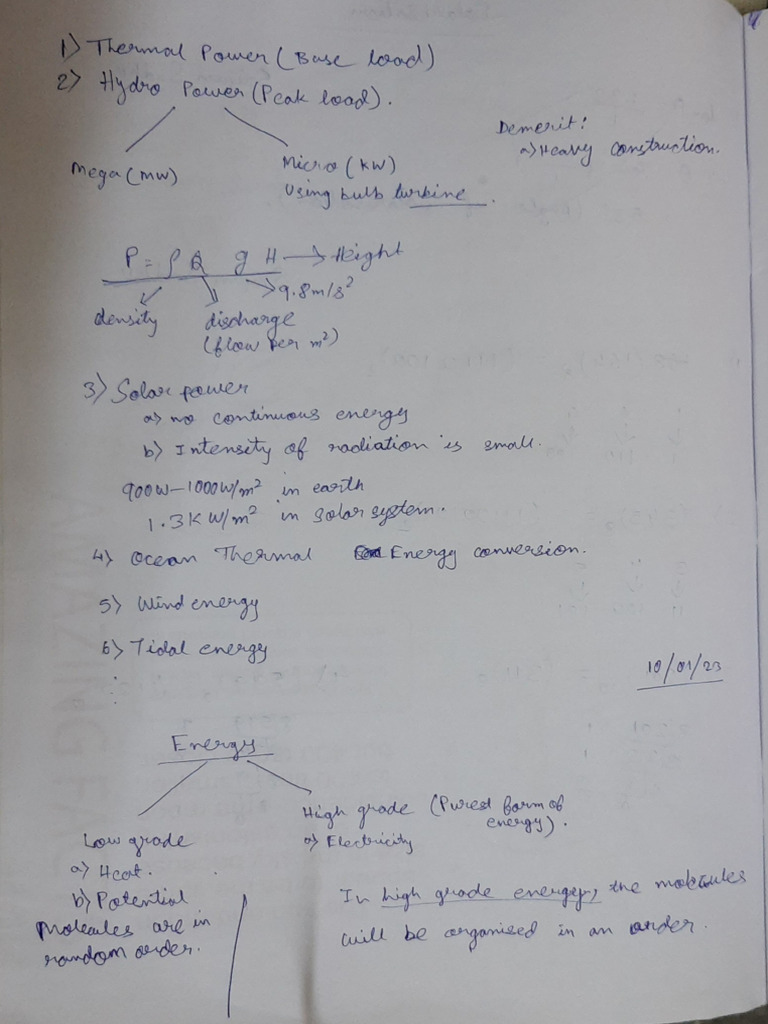 1) Thermal Power (Base load)
2) Hydro Power (Peak load).
Demerit:
a) Heavy construction.
Mega (MW)
Micro (KW)
Using bulb turbine.
P = ρ Q g H → Height
9.8 m/s²
density
discharge
(flow per m²)
3) Solar power
a) no continuous energy
b) Intensity of radiation is small.
900W – 1000W/m² in earth
1.3KW/m² in solar system.
4) Ocean Thermal Energy conversion.
5) Wind energy
6) Tidal energy
10/01/23
Energy
High grade (Purest form of
energy).
a) Electricity
Low grade
a) Heat.
b) Potential
Molecules are in
random order.
In high grade energy, the molecules
will be organised in an order.